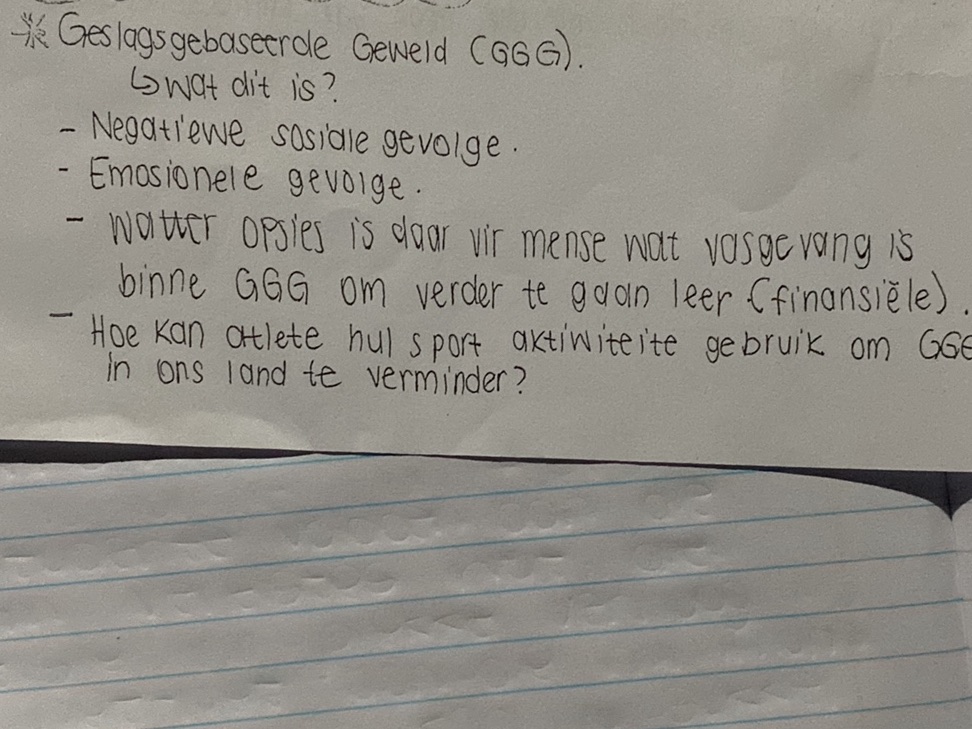 * Geslagsgebaseerde Geweld (GGG).
↳ wat dit is?
- Negatiewe sosiale gevolge.
- Emosionele gevolge.
- watter opsies is daar vir mense wat vasgevang is
binne GGG om verder te gaan leer (finansiële).
- Hoe kan atlete hul sport aktiwiteite gebruik om GGG
in ons land te verminder?